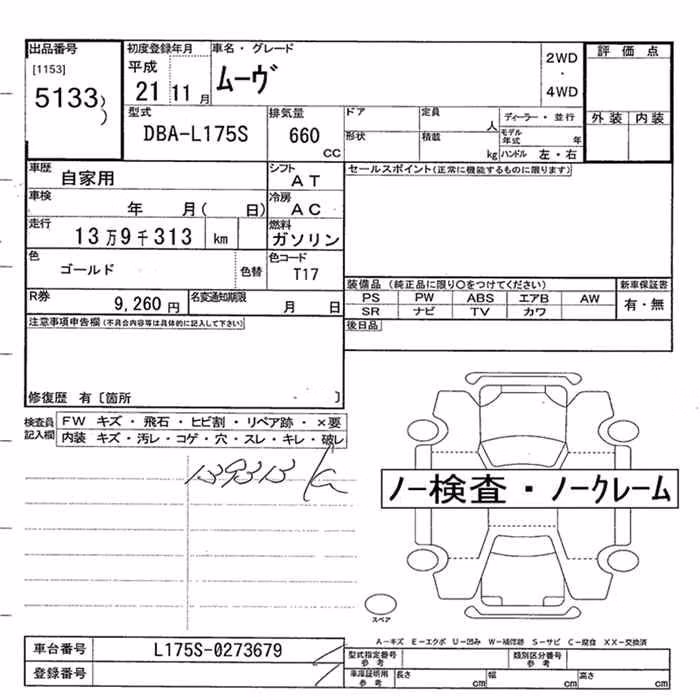 出品番号
[1153]
5133
初度登録年月
平成
21 11 月
車名・グレード
ムーヴ
2WD
・
4WD
評価点
外装 内装
型式
DBA-L175S
排気量
660
CC
ドア
形状
定員
人
積載
kg
ディーラー・並行
モデル
年式 年
ハンドル 左・右
車歴
自家用
シフト
AT
車検
年 月( 日)
冷房
AC
走行
13万9千313 km
燃料
ガソリン
色
ゴールド
色替
色コード
T17
R券
9,260 円
名変通知期限
月 日
セールスポイント(正常に機能するものに限ります)
装備品(純正品に限り○をつけてください)
新車保証書
PS PW ABS エアB AW
SR ナビ TV カワ
有・無
後日品
注意事項申告欄(不具合内容等は具体的に記入して下さい)
修復歴 有〔箇所 〕
検査員
記入欄
FW キズ・飛石・ヒビ割・リペア跡・×要
内装 キズ・汚レ・コゲ・穴・スレ・キレ・破レ
139313 K
ノー検査・ノークレーム
スペア
A-キズ E-エクボ U-凹み W-補修跡 S-サビ C-腐食 XX-交換済
車台番号
L175S-0273679
登録番号
型式指定番号
参考
類別区分番号
参考
車庫証明用
参考
長さ cm
幅 cm
高さ cm